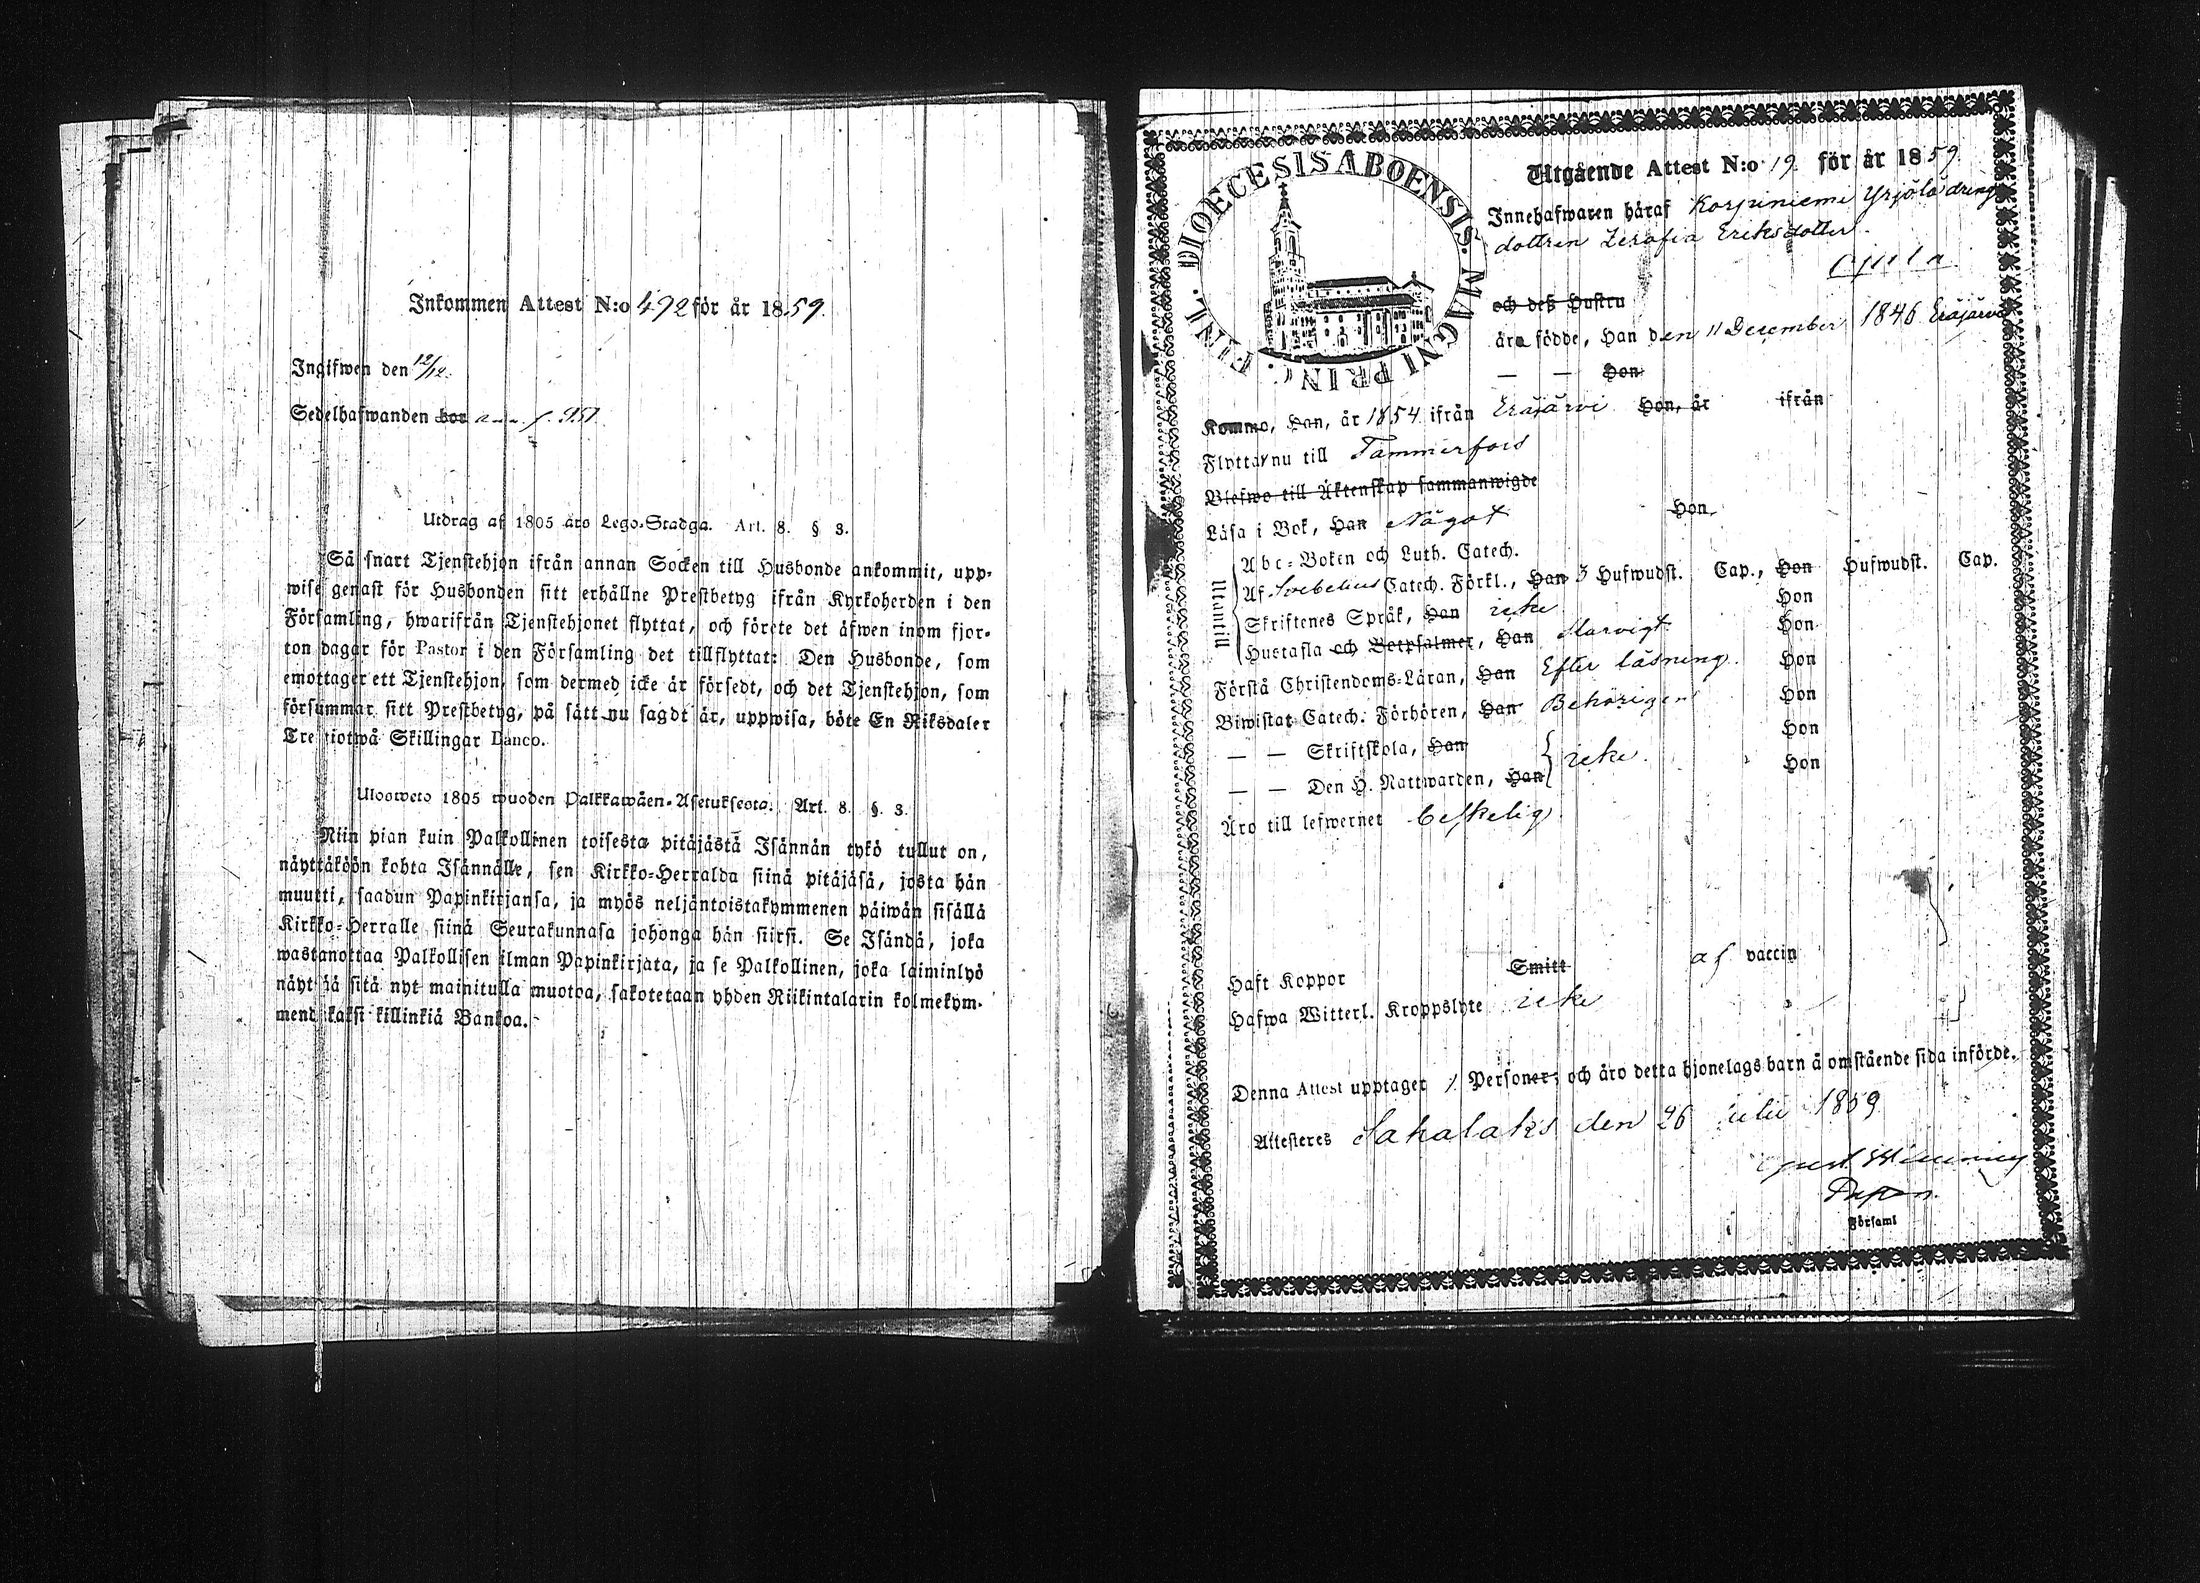 Inkommen Attest N:o 492 för år 1859.
Ingifwen den 12/12.
Sedelhafwanden bor
Utdrag af 1805 års Lego-Stadga. Art. 8. § 3.
Så snart Tjenstehjon ifrån annan Socken till Husbonde ankommit, upp-
wise genast för Husbonden sitt erhållne Prestbetyg ifrån Kyrkoherden i den
Församling, hwarifrån Tjenstehjonet flyttat, och förete det äfwen inom fjor-
ton dagar för Pastor i den Församling det tillflyttat: Den Husbonde, som
emottager ett Tjenstehjon, som dermed icke är försedt, och det Tjenstehjon, som
försummar sitt Prestbetyg, på sätt nu sagdt är, uppwisa, böte En Riksdaler
Tre tiotwå Skillingar Banco.
Ulosweto 1805 wuoden Palkkawäen-Asetuksesta. Art. 8. §. 3.
Niin pian kuin Palkollinen toisesta pitäjästä Isännän tykö tullut on,
näyttäköön kohta Isännälle, sen Kirkko-Herralda siinä pitäjäsä, josta hän
muutti, saadun Papinkirjansa, ja myös neljäntoistakymmenen päiwän sisällä
Kirkko-Herralle siinä Seurakunnasa johonga hän siirsi. Se Isändä, joka
wastanottaa Palkollisen ilman Papinkirjata, ja se Palkollinen, joka laiminlyö
näyttää sitä nyt mainitulla muotoa, sakotetaan yhden Riikintalarin kolmekym-
mendäkaksi killinkiä Bankoa.
DIOECESIS ABOENSIS. MAGNI PRINC. FINL.
Utgående Attest N:o 19. för år 1859.
Innehafwaren häraf Korpiniemi Yrjölä dräng
dottren Serafia Eriksdotter.
och deß Hustru
äro födde, Han den 11 December 1846 Eräjärvi
— — Hon
Kommo, Han, år 1854 ifrån Eräjärvi Hon, år ifrån
Flyttar nu till Tammerfors
Blefwo till Äktenskap sammanwigde
Läsa i Bok, Han Något Hon
Utantill
Abc-Boken och Luth. Catech.
Af Svebelius Catech. Förkl., Han 3 Hufwudst. Cap., Hon Hufwudst. Cap.
Skriftenes Språk, Han icke Hon
Hustafla och Botpsalmer, Han Hon
Förstå Christendoms-Läran, Han Efter läsning. Hon
Biwistat Catech. Förhören, Han Behörigen Hon
— — Skriftskola, Han Hon
— — Den H. Nattwarden, Han icke. Hon
Äro till lefwernet beskelig.
Haft Koppor Smitt af vaccin
Hafwa Witterl. Kroppslyte icke
Denna Attest upptager 1 Personer, och äro detta hjonelags barn å omstående sida införde.
Attesteres Sahalaks den 26 Julii 1859
Församl